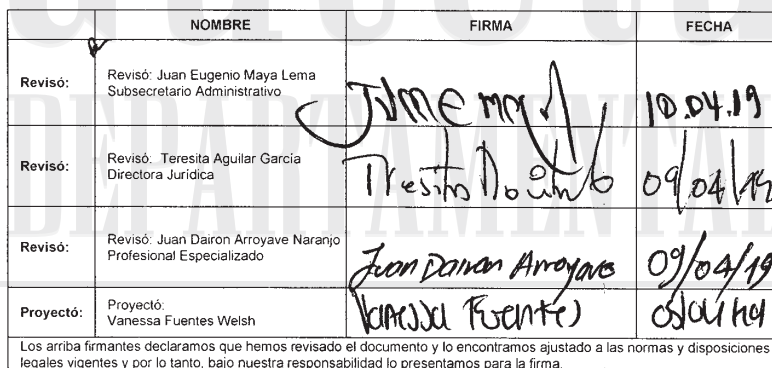 NOMBRE FIRMA FECHA
Revisó: Revisó: Juan Eugenio Maya Lema
Subsecretario Administrativo
10.04.19
Revisó: Revisó: Teresita Aguilar García
Directora Jurídica
09/04/19
Revisó: Revisó: Juan Dairon Arroyave Naranjo
Profesional Especializado
Juan Dairon Arroyave 09/04/19
Proyectó: Proyectó:
Vanessa Fuentes Welsh
Vanessa Fuentes
Los arriba firmantes declaramos que hemos revisado el documento y lo encontramos ajustado a las normas y disposiciones
legales vigentes y por lo tanto, bajo nuestra responsabilidad lo presentamos para la firma.
DEPARTAMENTAL